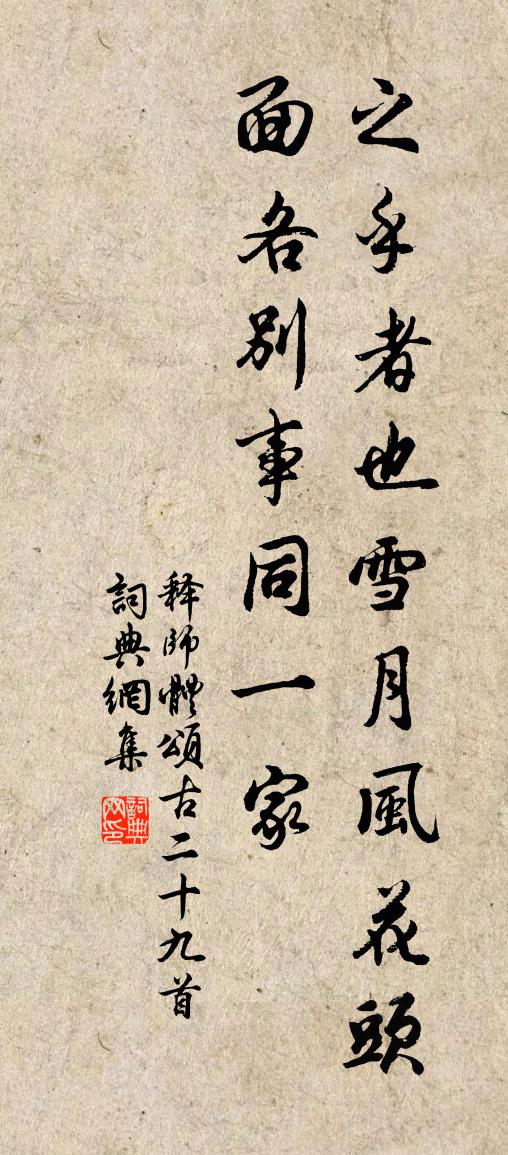 之乎者也雪月風花頭
面各別事同一家
释師體頌古二十九首
詞典網集
詞典网印